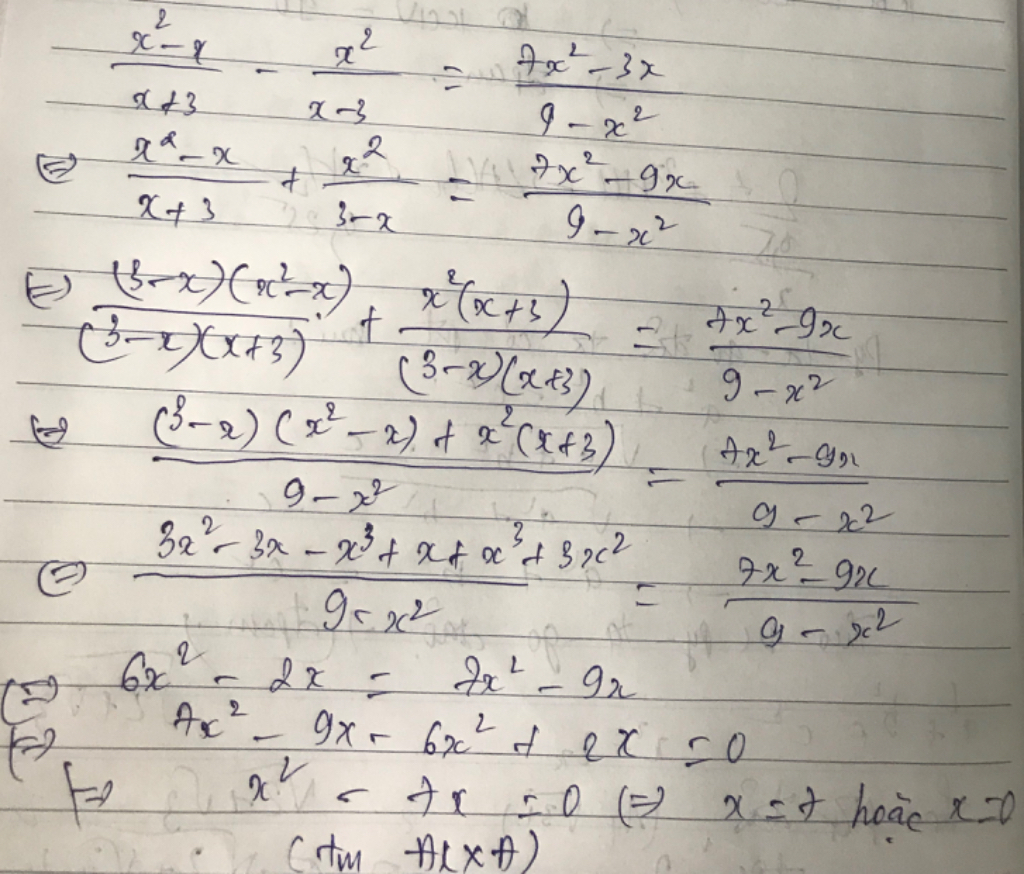 (x² - x)/(x+3) - x²/(x-3) = (7x² - 3x)/(9 - x²)
⇔ (x² - x)/(x+3) + x²/(3-x) = (7x² - 9x)/(9 - x²)
⇔ (3-x)(x²-x)/(3-x)(x+3) + x²(x+3)/(3-x)(x+3) = (7x² - 9x)/(9 - x²)
⇔ ((3-x)(x² - x) + x²(x+3))/(9 - x²) = (7x² - 9x)/(9 - x²)
⇔ (3x² - 3x - x³ + x + x³ + 3x²)/(9 - x²) = (7x² - 9x)/(9 - x²)
⇔ 6x² - 2x = 7x² - 9x
⇔ 7x² - 9x - 6x² + 2x = 0
⇔ x² - 7x = 0 ⇔ x = 7 hoặc x = 0
(tm ĐKXĐ)